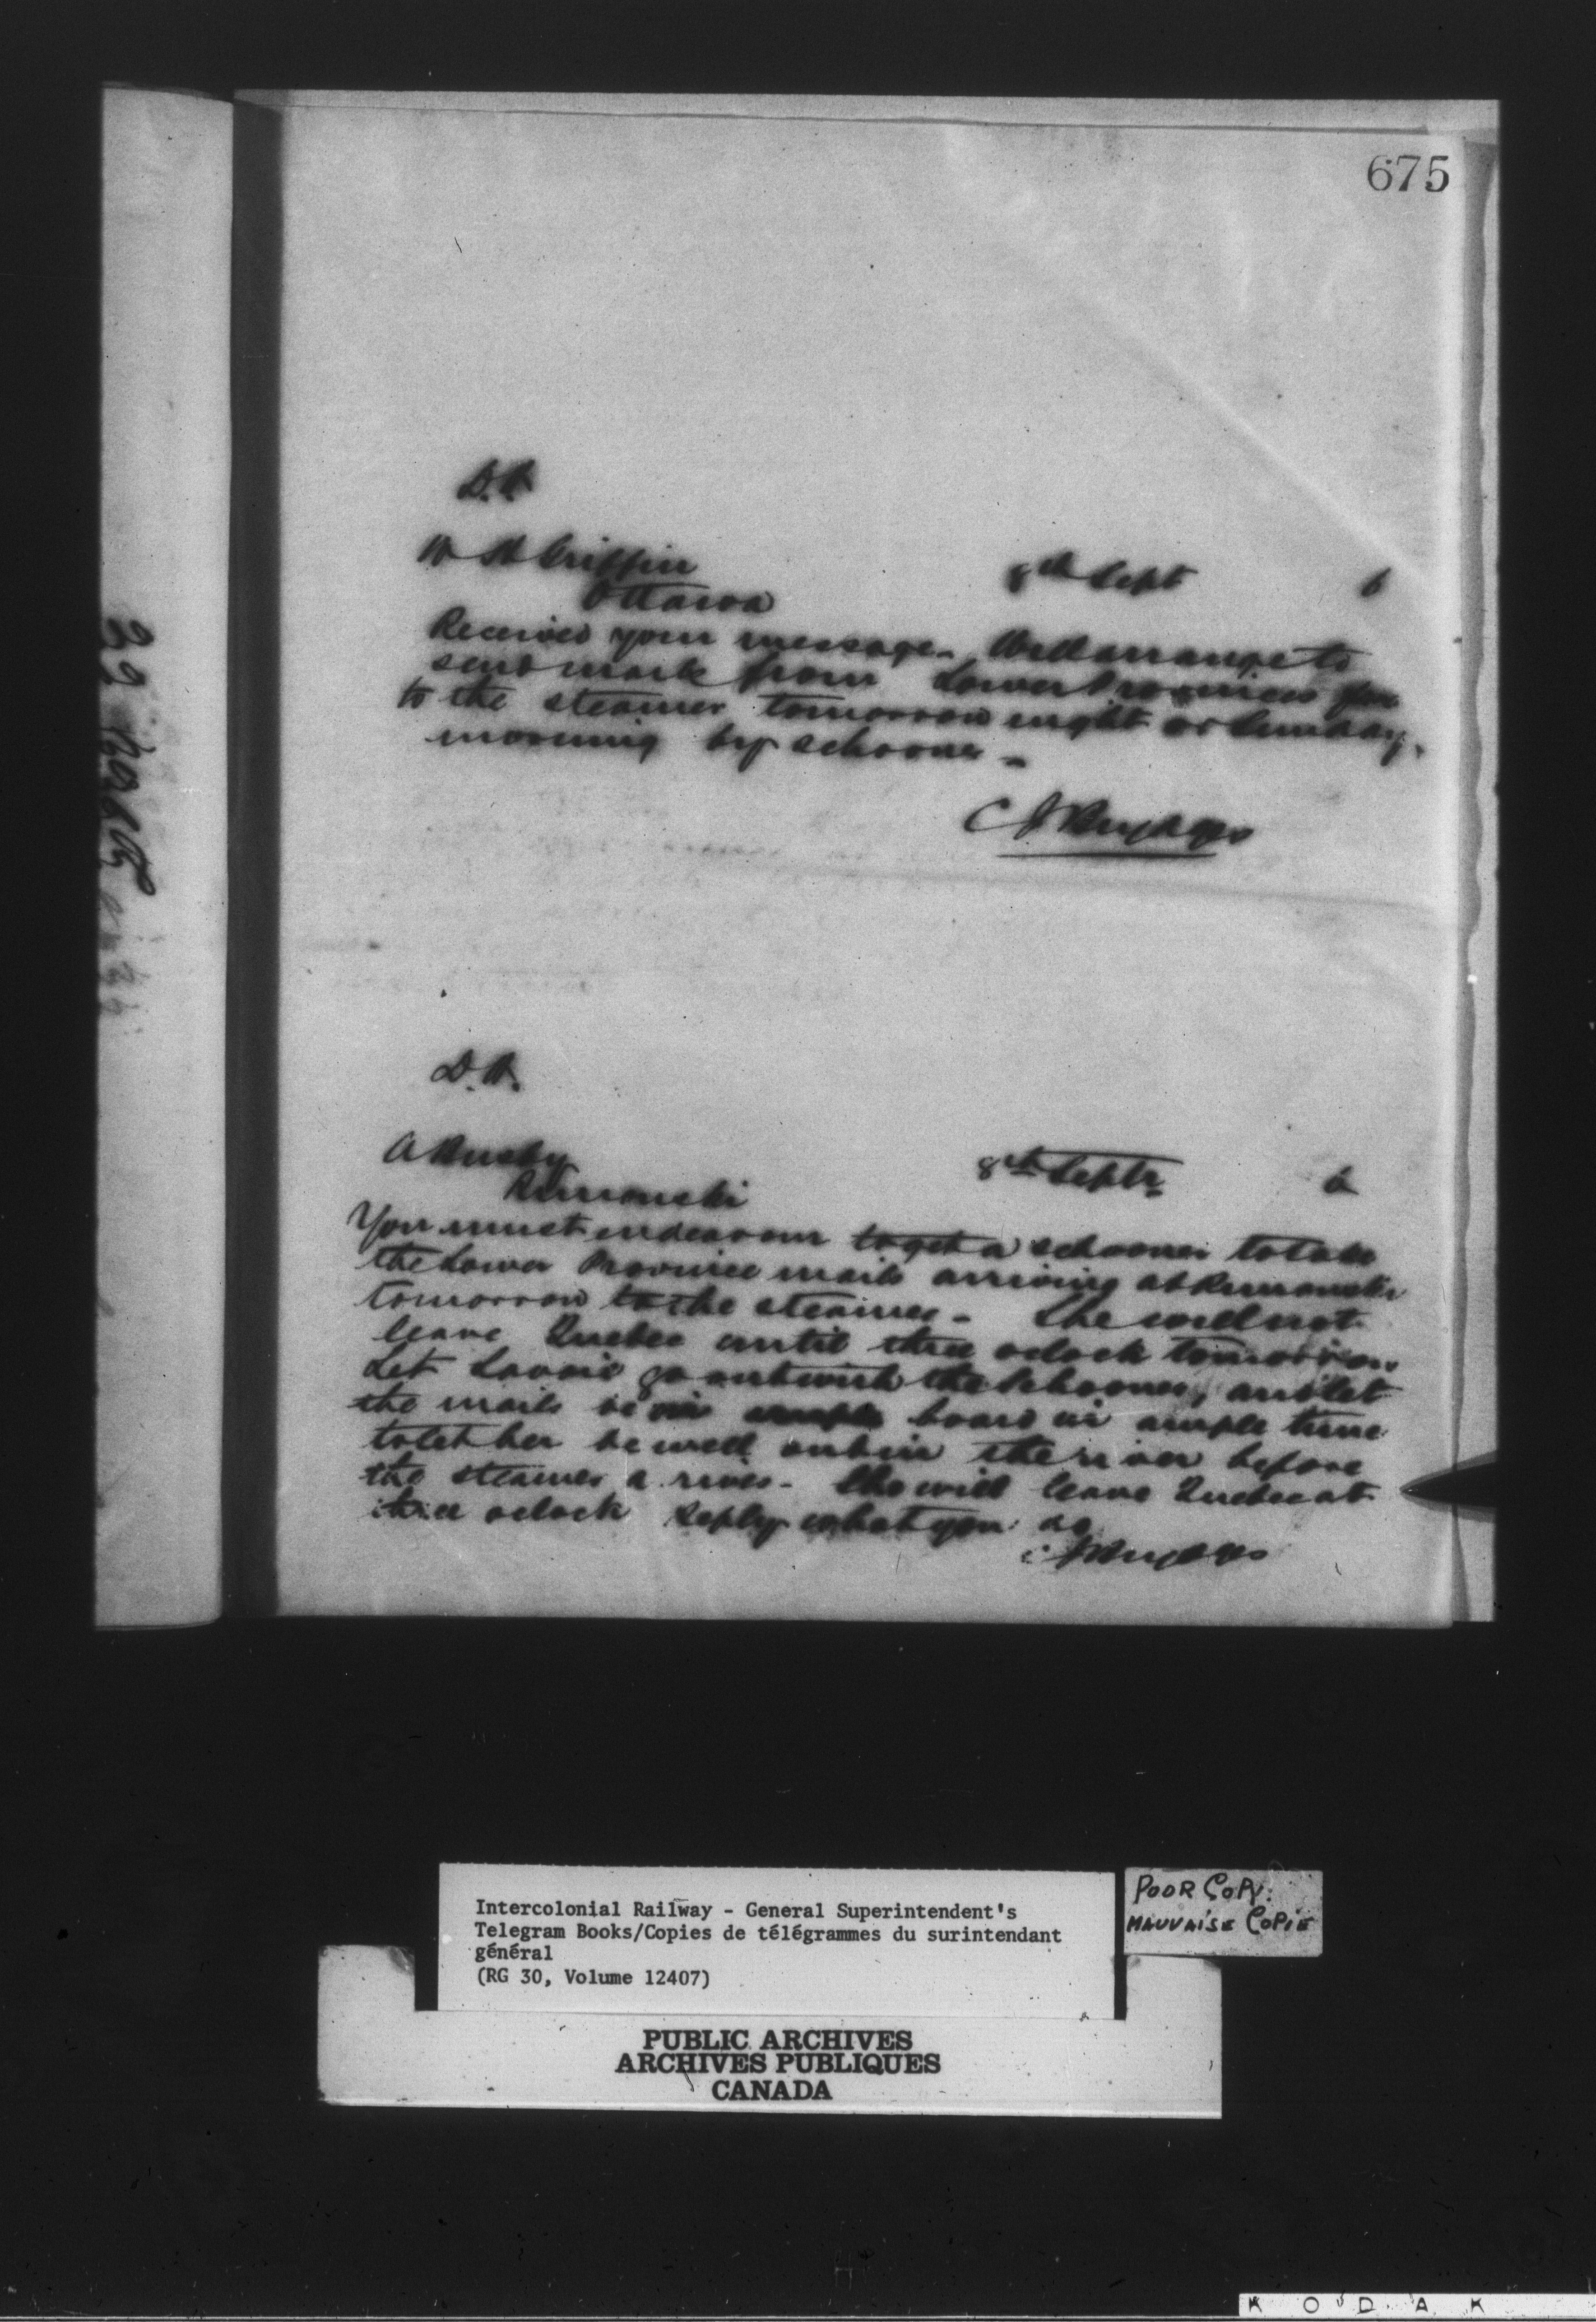 675
D.H.
W H Griffin
Ottawa
8th Sept 6
Received your message. Will arrange to
send mails from Lower Provinces
to the steamer tomorrow night or Sunday
morning by schooner -
C J Brydges
D.H.
A Busby
Rimouski
8th Septr 6
You must endeavour to get a schooner to take
the Lower Province mails arriving at Rimouski
tomorrow to the steamer - She will not
leave Quebec until three oclock tomorrow
Let Lavoie go out with the schooner, and let
the mails be board in ample time
to let her be well out in the river before
the steamer arives - She will leave Quebec at
three oclock Reply what you do
C J Brydges
Intercolonial Railway - General Superintendent's
Telegram Books/Copies de télégrammes du surintendant
général
(RG 30, Volume 12407)
POOR COPY.
MAUVAISE COPIE
PUBLIC ARCHIVES
ARCHIVES PUBLIQUES
CANADA
KODAK